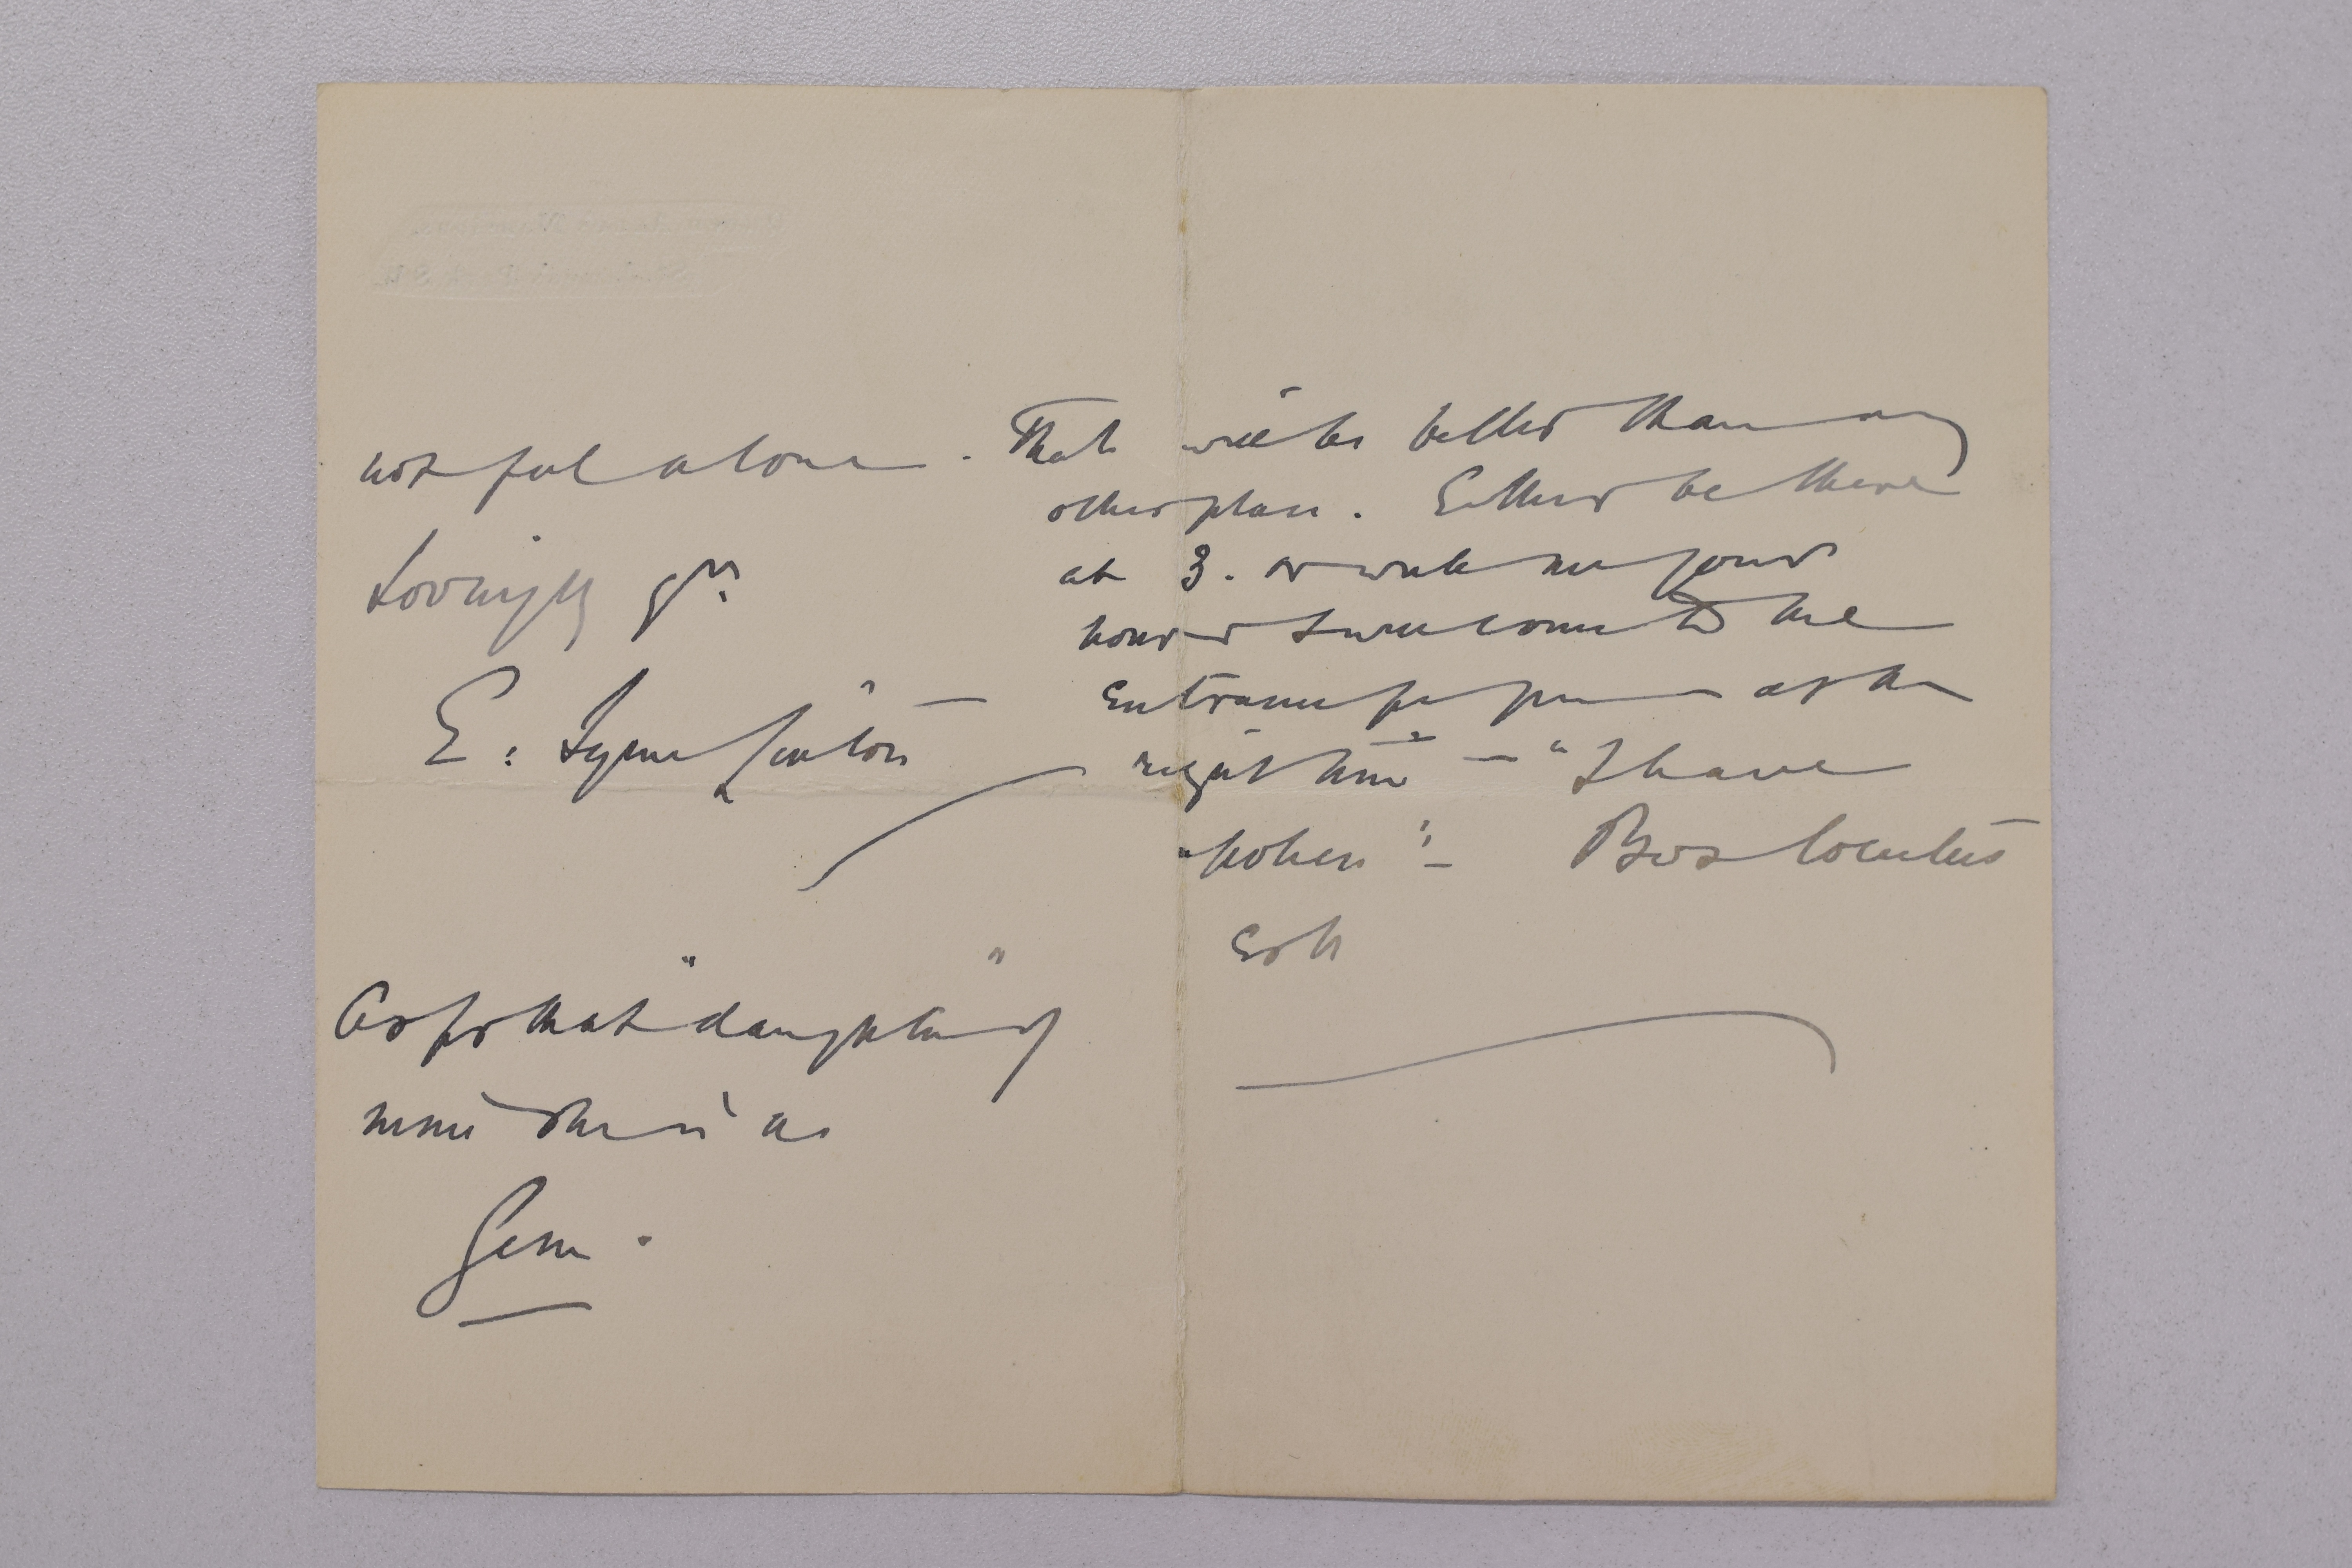 not feel alone.
Lovingly yrs
E: Lynn Linton
As for that "daughter" of
mine she is a
Gem.
That will be better than any
other plan. Either be there
at 3. or write me your
hour & I will come to the
entrance for you at the
right time — "I have
spoken" — Bos locutus
est